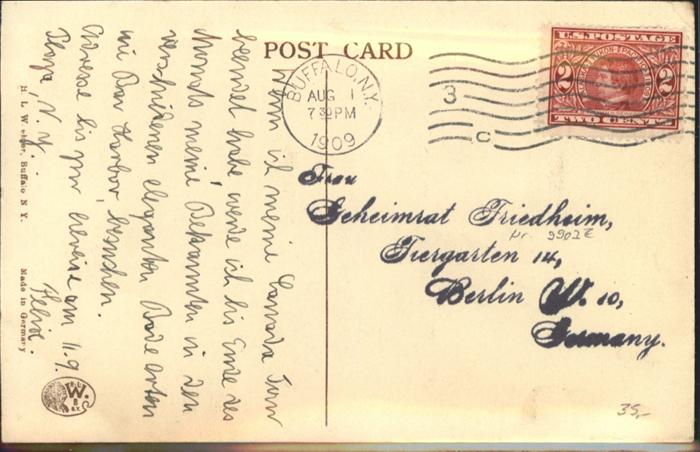 POST CARD
BUFFALO, N.Y.
AUG 1
7 30 PM
1909
3
C
U.S. POSTAGE
2 2
TWO CENTS
Wenn ich meine Canada Tour
beendet habe werde ich bis Ende des
Monats meine Bekannten in den
verschiedenen eleganten Badeorten
wie Bar Harbor besuchen.
Adresse bis zur Abreise am 11.9.
Plaza, N.Y.
Frau
Geheimrat Friedheim,
Tiergarten 14,
Berlin W. 10,
Germany.
Nr. 9902 E
35,-
Buffalo N.Y.
Made in Germany